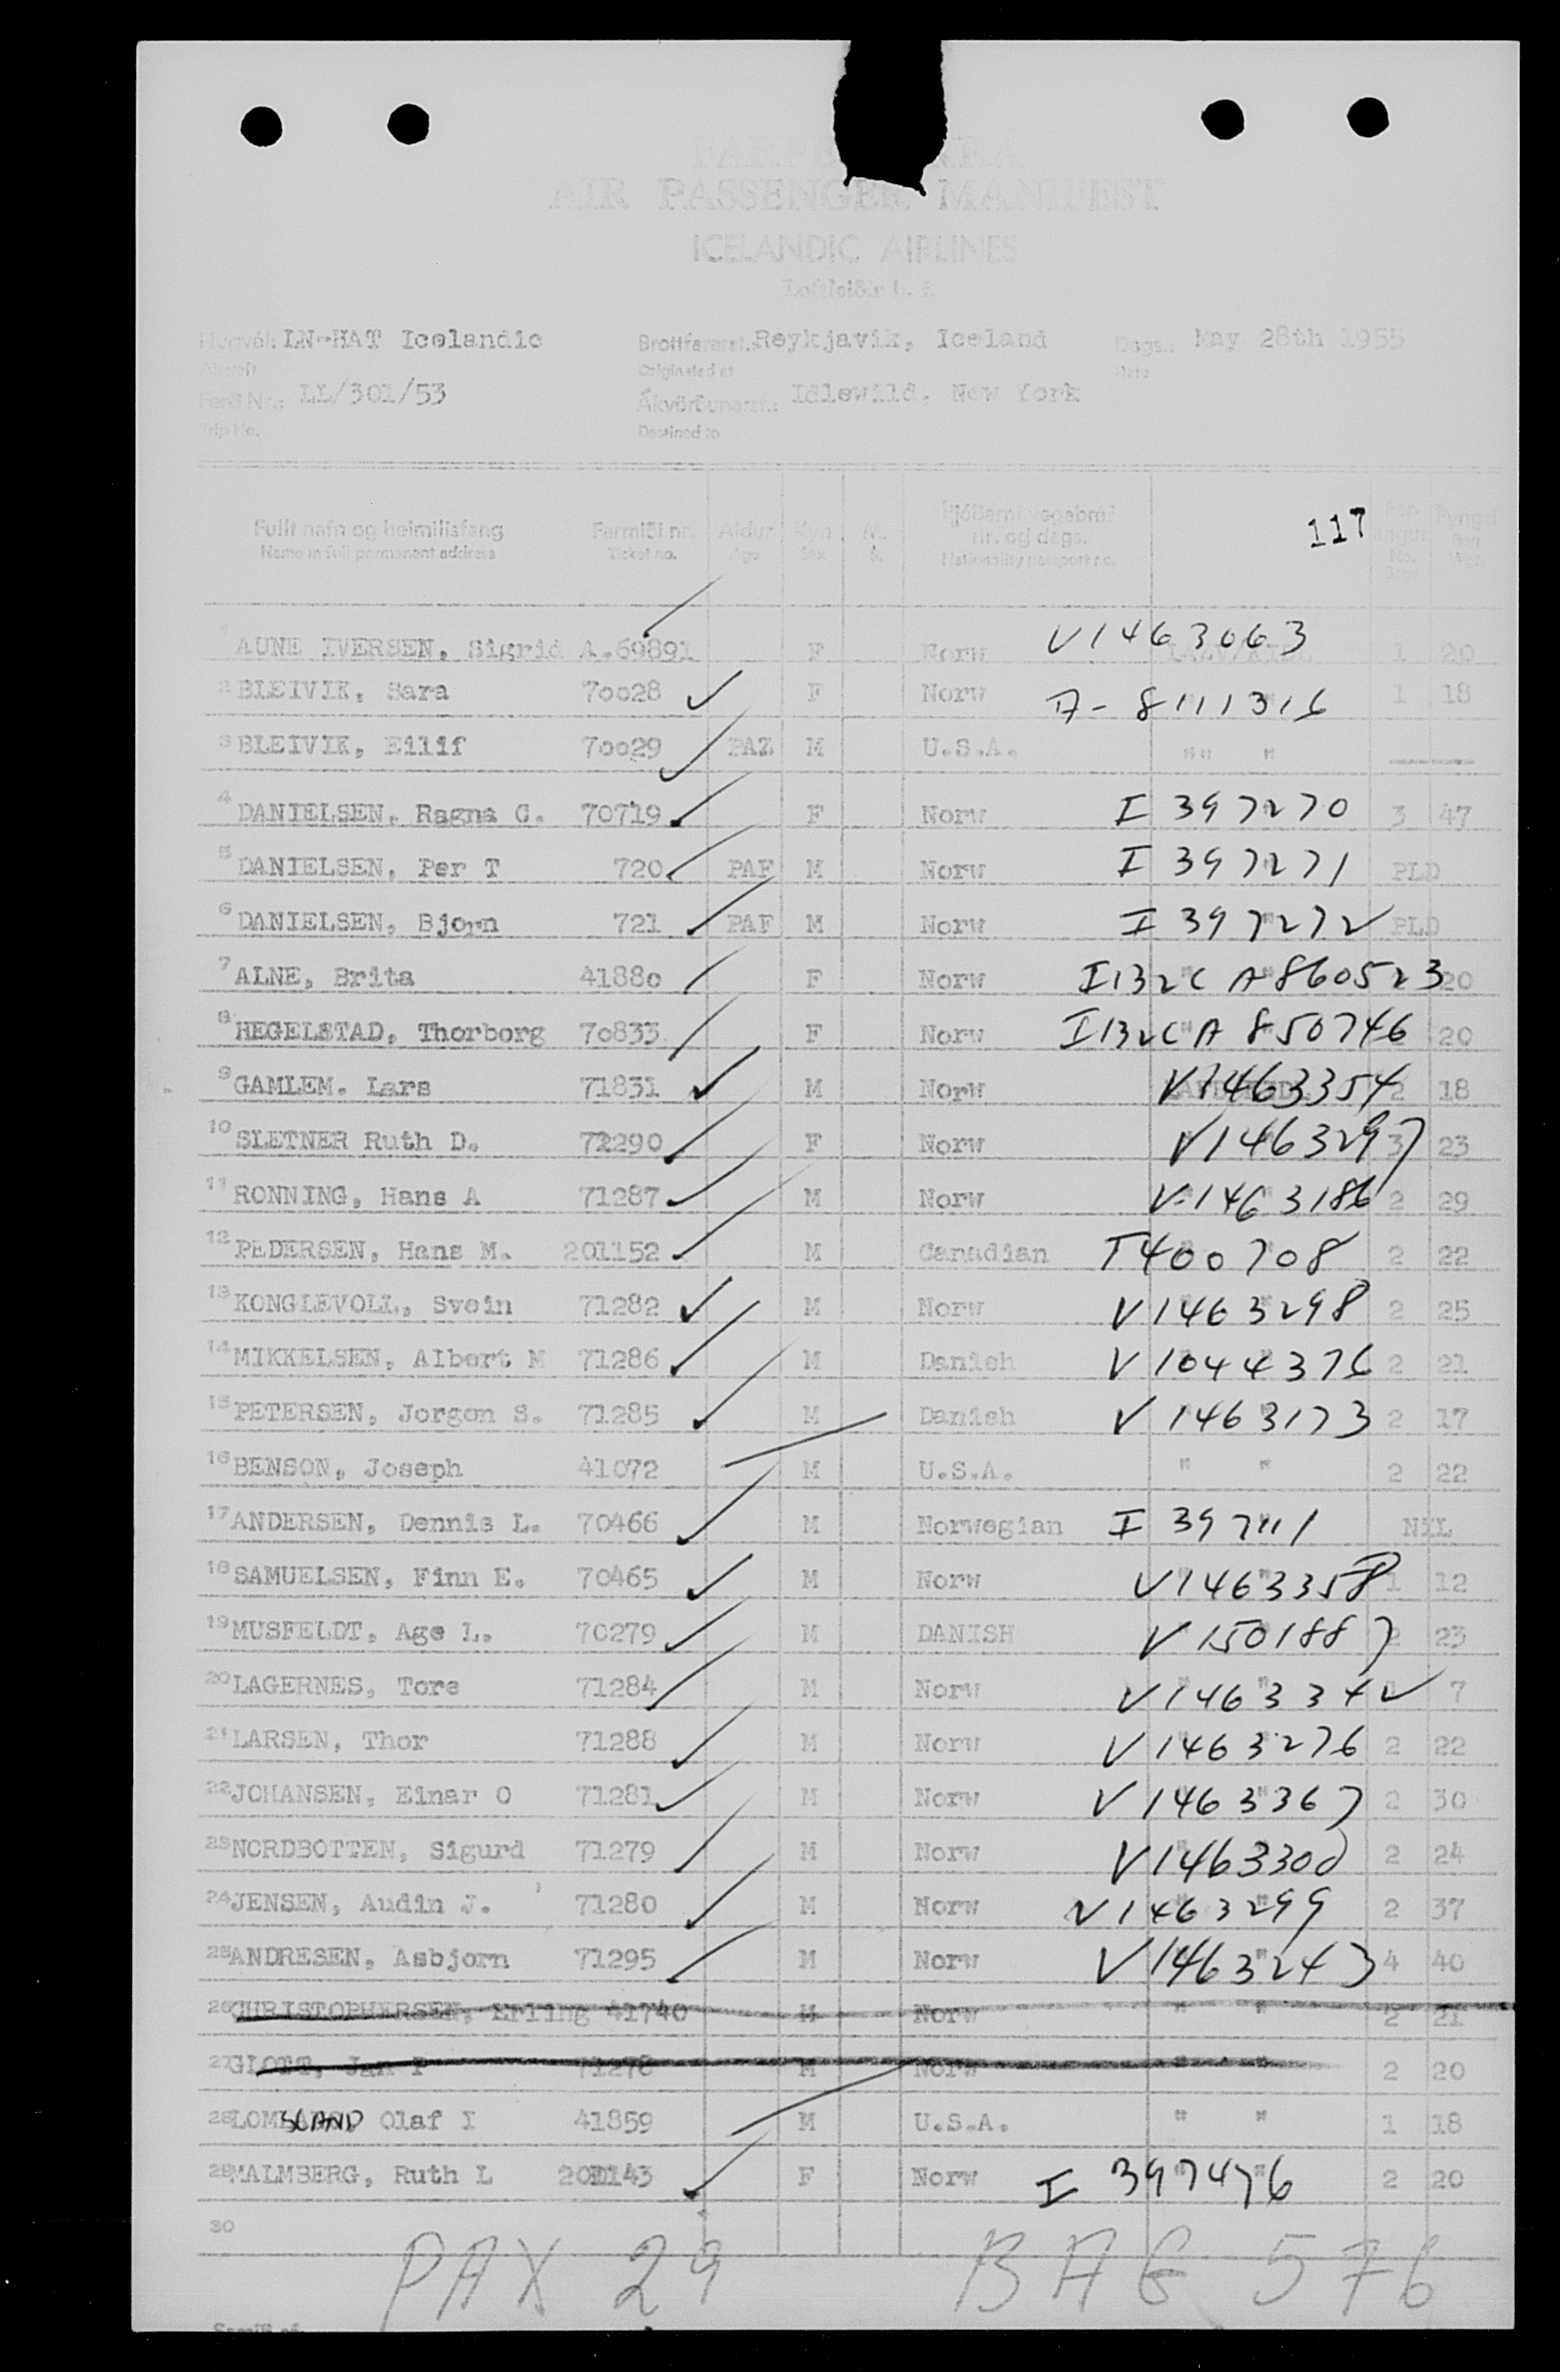 AIR PASSENGER MANIFEST
ICELANDIC AIRLINES
LN-HAT Icelandic Brottfararst.: Reykjavik, Iceland Dags.: May 28th 1955
Aircraft Originated at Date
Ferð Nr.: LL/301/53 Ákvörðunarst.: Idlewild, New York
Trip No. Destined to
117
Fullt nafn og heimilisfang Farmiði nr. Aldur Kyn
Name in full permanent address Ticket no. Age Sex Nationality passport no.
1 AUNE IVERSEN, Sigrid A. 69891 F Norw V1463063 1 20
2 BLEIVIK, Sara 70028 F Norw A-8111316 1 18
3 BLEIVIK, Eilif 70029 PAZ M U.S.A. " " "
4 DANIELSEN, Ragna G. 70719 F Norw I 397270 3 47
5 DANIELSEN, Per T 720 PAF M Norw I 397271 PLD
6 DANIELSEN, Bjorn 721 PAF M Norw I 397272 PLD
7 ALNE, Brita 41880 F Norw I132C A8860523 20
8 HEGELSTAD, Thorborg 70833 F Norw I132C A 850746 20
9 GAMLEM. Lars 71831 M Norw V1463354 2 18
10 SLETNER Ruth D. 72290 F Norw V1463297 3 23
11 RONNING, Hans A 71287 M Norw V-1463186 2 29
12 PEDERSEN, Hans M. 201152 M Canadian T400708 2 22
13 KONGLEVOLL, Svein 71282 M Norw V1463298 2 25
14 MIKKELSEN, Albert M 71286 M Danish V1044376 2 21
15 PETERSEN, Jorgen S. 71285 M Danish V1463173 2 17
16 BENSON, Joseph 41072 M U.S.A. " " 2 22
17 ANDERSEN, Dennis L. 70466 M Norwegian I 397111 NIL
18 SAMUELSEN, Finn E. 70465 M Norw V1463358 1 12
19 MUSFELDT, Age L. 70279 M DANISH V1501887 2 23
20 LAGERNES, Tore 71284 M Norw V1463342 7
21 LARSEN, Thor 71288 M Norw V1463276 2 22
22 JOHANSEN, Einar O 71281 M Norw V1463367 2 30
23 NORDBOTTEN, Sigurd 71279 M Norw V1463300 2 24
24 JENSEN, Audin J. 71280 M Norw V1463299 2 37
25 ANDRESEN, Asbjorn 71295 M Norw V1463243 4 40
26 CHRISTOPHERSEN, Erling 41740 M Norw " " 2 21
27 GLOTT, Jan P 71278 M Norw " " 2 20
28 LOMSLAND Olaf I 41859 M U.S.A. " " 1 18
29 MALMBERG, Ruth L 200143 F Norw I 397476 2 20
30
PAX 29 BAG 576